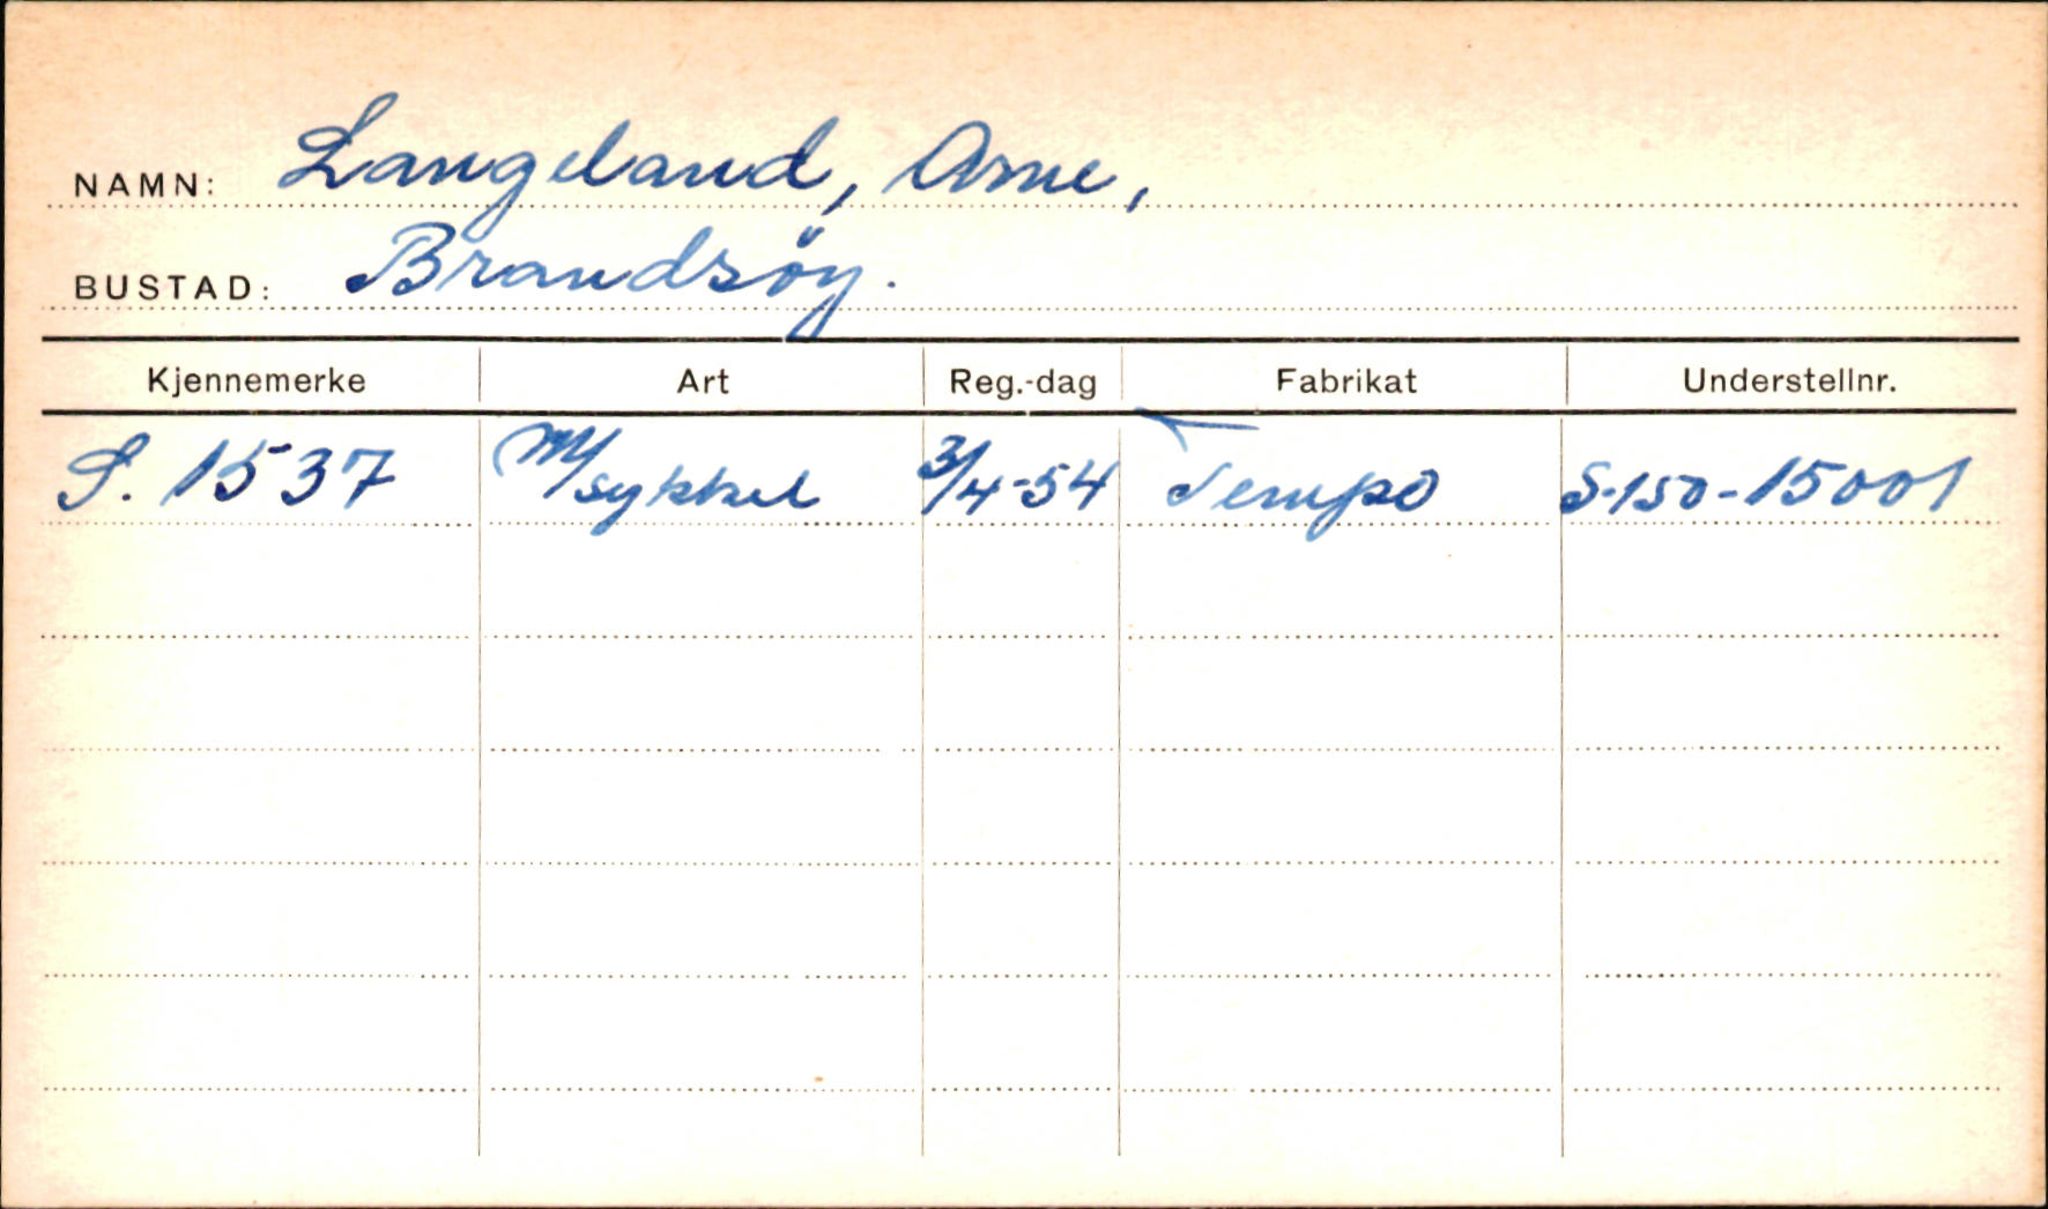 NAMN: Langeland, Arne,
BUSTAD: Brandsöy.
Kjennemerke Art Reg.-dag Fabrikat Understellnr.
S. 1537 M/sykkel 3/4-54 Tempo S-150-15001